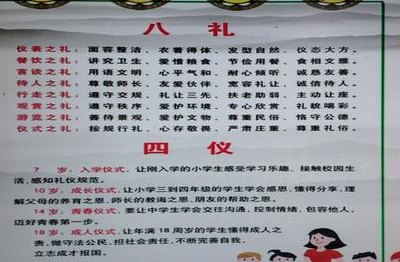 八 礼
仪表之礼：面容整洁、衣着得体、发型自然、仪态大方。
餐饮之礼：讲究卫生、爱惜粮食、节俭用餐、食相文雅。
言谈之礼：用语文明、心平气和、耐心倾听、诚恳友善。
待人之礼：尊敬师长、友爱伙伴、宽容礼让、诚信待人。
行走之礼：遵守交规、礼让三先、扶老助弱、主动让座。
观赏之礼：遵守秩序、爱护环境、专心欣赏、礼貌喝彩。
游览之礼：善待景观、爱护文物、尊重民俗、恪守公德。
仪式之礼：按规行礼、心存敬畏、严肃庄重、尊重礼俗。
四 仪
7 岁：入学仪式，让刚入学的小学生感受学习乐趣、接触校园生
活，感知礼仪规范。
10 岁：成长仪式，让小学三到四年级的学生学会感恩，懂得分享，理
解父母的养育之恩，师长的教诲之恩，朋友的帮助之恩。
14 岁：青春仪式，要让中学生学会交往沟通，控制情绪、包容他人，
迈好青春第一步。
18 岁：成人仪式，让年满 18 周岁的学生懂得成人之
责，做守法公民，担社会责任，不断完善自我，
立志成才报国。